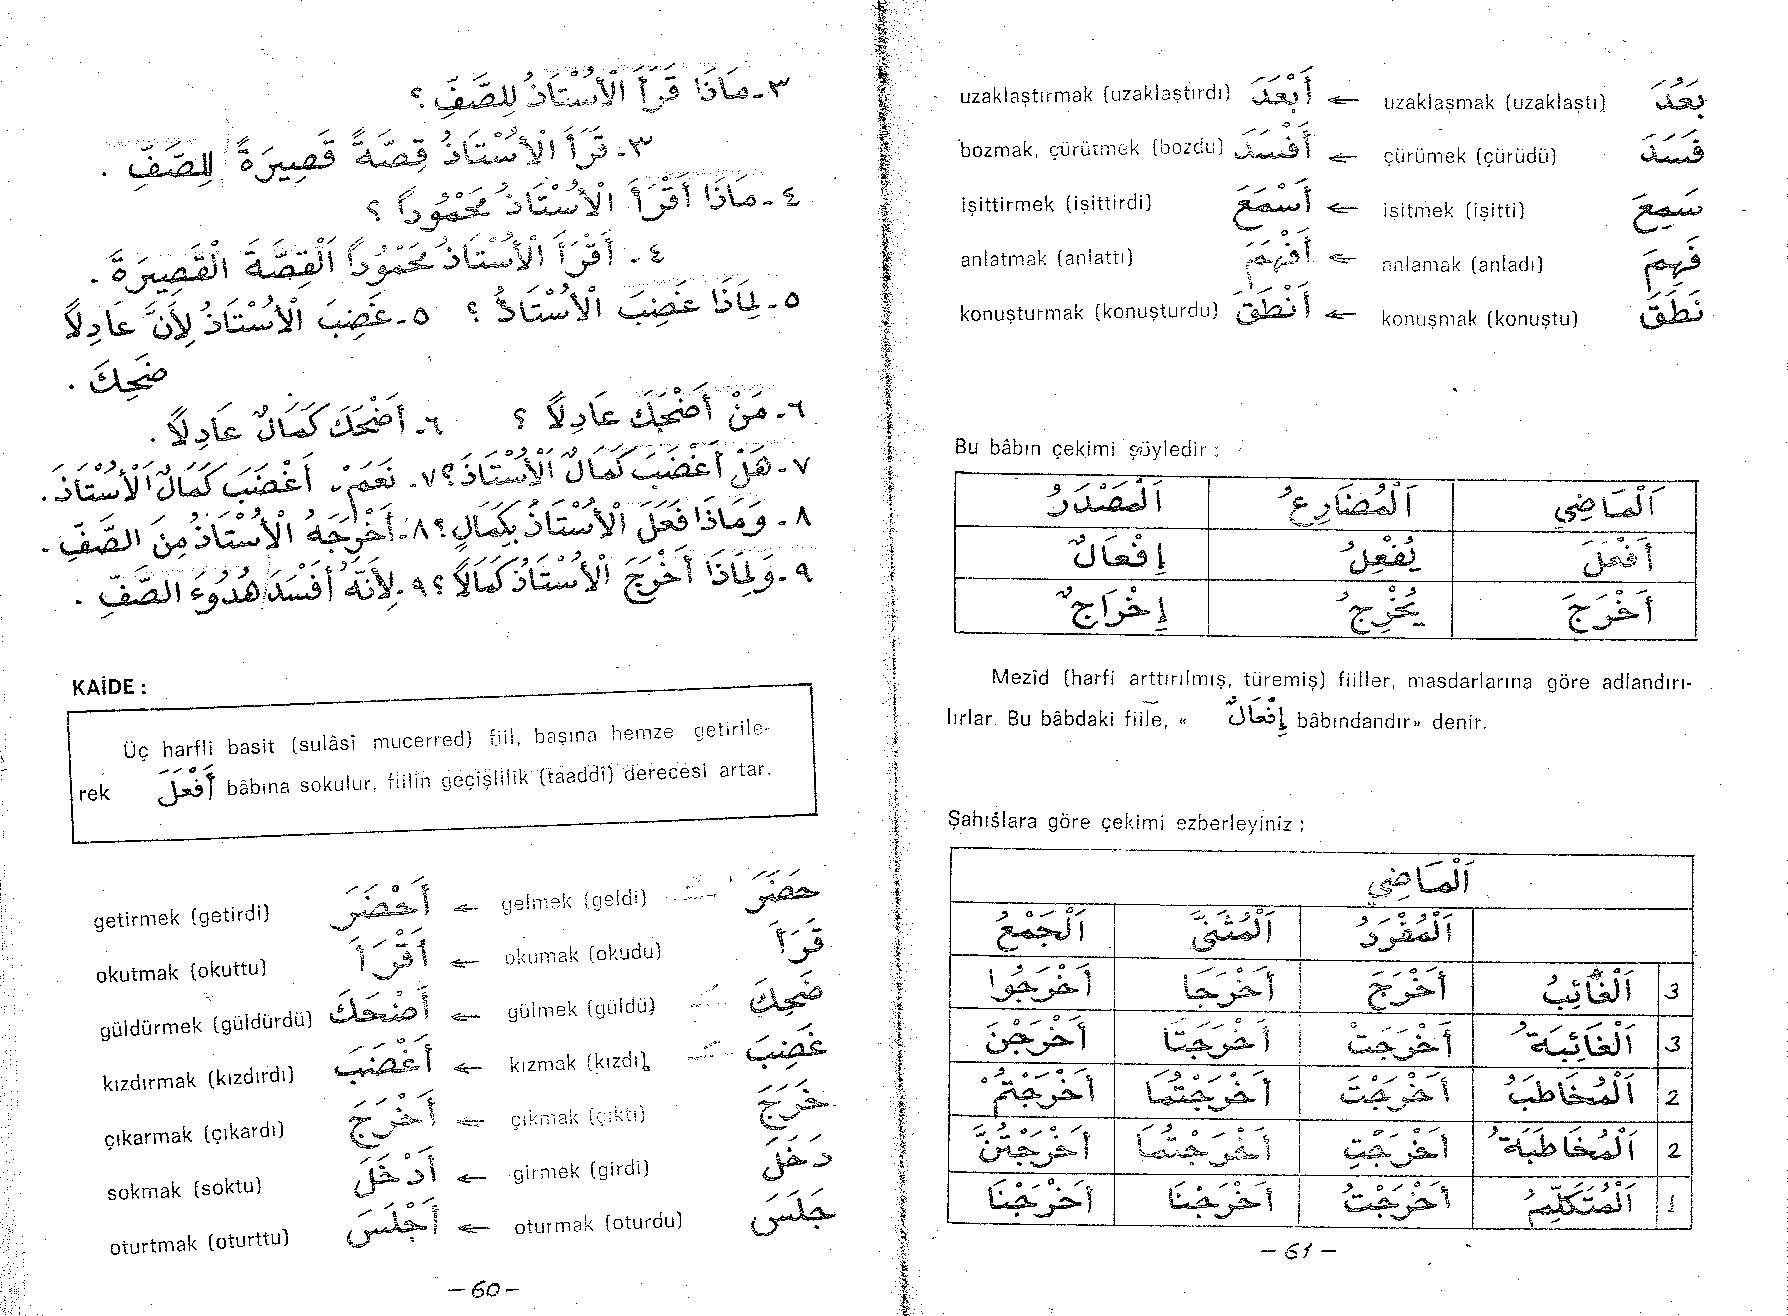 ٣ـ مَاذَا قَرَأَ الْأُسْتَاذُ لِلصَّفِّ ؟
٣ـ قَرَأَ الْأُسْتَاذُ قِصَّةً قَصِيرَةً لِلصَّفِّ .
٤ـ مَاذَا أَقْرَأَ الْأُسْتَاذُ مَحْمُوداً ؟
٤ـ أَقْرَأَ الْأُسْتَاذُ مَحْمُوداً الْقِصَّةَ الْقَصِيرَةَ .
٥ـ لِمَاذَا غَضِبَ الْأُسْتَاذُ ؟ ٥ـ غَضِبَ الْأُسْتَاذُ لِأَنَّ عَادِلاً
ضَحِكَ .
٦ـ مَنْ أَضْحَكَ عَادِلاً ؟ ٦ـ أَضْحَكَ كَمَالٌ عَادِلاً .
٧ـ هَلْ أَغْضَبَ كَمَالٌ الْأُسْتَاذَ ؟ ٧ـ نَعَمْ، أَغْضَبَ كَمَالٌ الْأُسْتَاذَ .
٨ـ وَمَاذَا فَعَلَ الْأُسْتَاذُ بِكَمَالٍ ؟ ٨ـ أَخْرَجَهُ الْأُسْتَاذُ مِنَ الصَّفِّ .
٩ـ وَلِمَاذَا أَخْرَجَ الْأُسْتَاذُ كَمَالاً ؟ ٩ـ لِأَنَّهُ أَفْسَدَ هُدُوءَ الصَّفِّ .
KAİDE :
Üç harfli basit (sulâsî mucerred) fiil, başına hemze getirile-
rek أَفْعَلَ bâbına sokulur, fiilin geçişlilik (taaddî) derecesi artar.
getirmek (getirdi) أَحْضَرَ ← gelmek (geldi) حَضَرَ
okutmak (okuttu) أَقْرَأَ ← okumak (okudu) قَرَأَ
güldürmek (güldürdü) أَضْحَكَ ← gülmek (güldü) ضَحِكَ
kızdırmak (kızdırdı) أَغْضَبَ ← kızmak (kızdı) غَضِبَ
çıkarmak (çıkardı) أَخْرَجَ ← çıkmak (çıktı) خَرَجَ
sokmak (soktu) أَدْخَلَ ← girmek (girdi) دَخَلَ
oturtmak (oturttu) أَجْلَسَ ← oturmak (oturdu) جَلَسَ
— 60 —
uzaklaştırmak (uzaklaştırdı) أَبْعَدَ ← uzaklaşmak (uzaklaştı) بَعُدَ
bozmak, çürütmek (bozdu) أَفْسَدَ ← çürümek (çürüdü) فَسَدَ
işittirmek (işittirdi) أَسْمَعَ ← işitmek (işitti) سَمِعَ
anlatmak (anlattı) أَفْهَمَ ← anlamak (anladı) فَهِمَ
konuşturmak (konuşturdu) أَنْطَقَ ← konuşmak (konuştu) نَطَقَ
Bu bâbın çekimi şöyledir :
اَلْمَاضِي اَلْمُضَارِعُ اَلْمَصْدَرُ
أَفْعَلَ يُفْعِلُ إِفْعَالٌ
أَخْرَجَ يُخْرِجُ إِخْرَاجٌ
Mezîd (harfi arttırılmış, türemiş) fiiller, masdarlarına göre adlandırı-
lırlar. Bu bâbdaki fiile, « إِفْعَالٌ bâbındandır» denir.
Şahıslara göre çekimi ezberleyiniz :
اَلْمَاضِي
اَلْمُفْرَدُ اَلْمُثَنَّى اَلْجَمْعُ
3 اَلْغَائِبُ أَخْرَجَ أَخْرَجَا أَخْرَجُوا
3 اَلْغَائِبَةُ أَخْرَجَتْ أَخْرَجَتَا أَخْرَجْنَ
2 اَلْمُخَاطَبُ أَخْرَجْتَ أَخْرَجْتُمَا أَخْرَجْتُمْ
2 اَلْمُخَاطَبَةُ أَخْرَجْتِ أَخْرَجْتُمَا أَخْرَجْتُنَّ
1 اَلْمُتَكَلِّمُ أَخْرَجْتُ أَخْرَجْنَا أَخْرَجْنَا
— 61 —